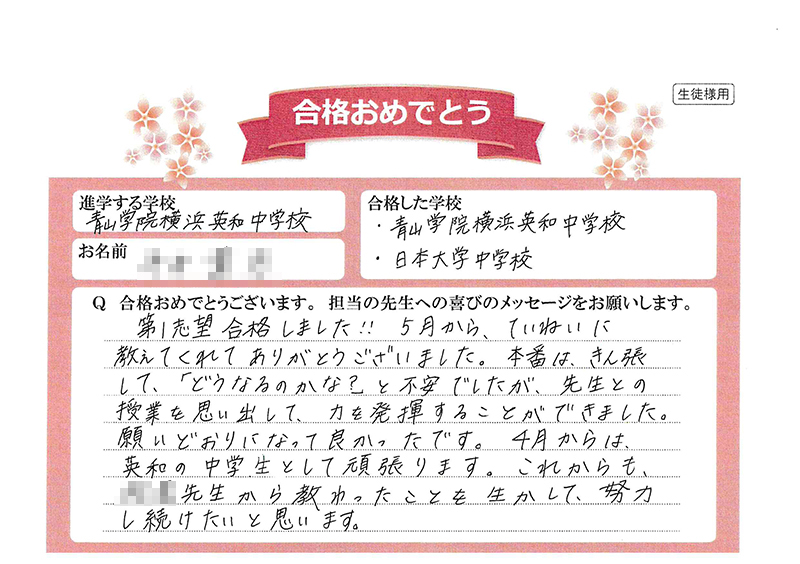 生徒様用
合格おめでとう
進学する学校
青山学院横浜英和中学校
お名前
合格した学校
・青山学院横浜英和中学校
・日本大学中学校
Q 合格おめでとうございます。担当の先生への喜びのメッセージをお願いします。
第1志望合格しました!! 5月から、ていねいに
教えてくれてありがとうございました。本番は、きん張
して、「どうなるのかな?」と不安でしたが、先生との
授業を思い出して、力を発揮することができました。
願いどおりになって良かったです。4月からは、
英和の中学生として頑張ります。これからも、
先生から教わったことを生かして、努力
し続けたいと思います。